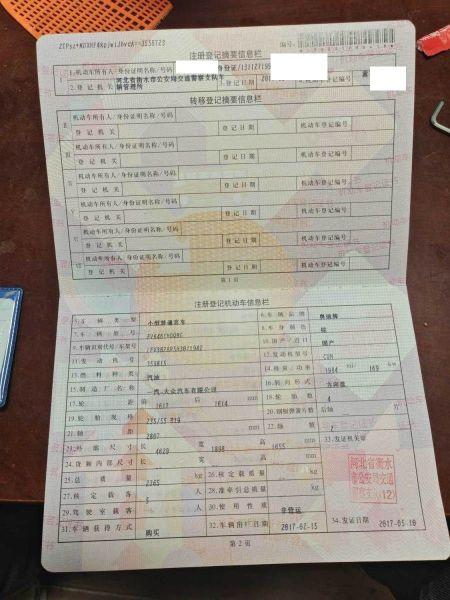 注册登记摘要信息栏
编号:
1.机动车所有人/身份证明名称/号码
2.登记机关 河北省衡水市公安局交通警察支队车辆管理所 3.
转移登记摘要信息栏
机动车所有人/身份证明名称/号码
登记机关 登记日期 机动车登记编号
机动车所有人/身份证明名称/号码
登记机关 登记日期 机动车登记编号
机动车所有人/身份证明名称/号码
登记机关 登记日期 机动车登记编号
机动车所有人/身份证明名称/号码
登记机关 登记日期 机动车登记编号
机动车所有人/身份证明名称/号码
登记机关 登记日期 机动车登记编号
机动车所有人/身份证明名称/号码
登记机关 登记日期 机动车登记编号
第1页
注册登记机动车信息栏
5.车辆类型 小型普通客车 6.车辆品牌 奥迪牌
7.车辆型号 8.车身颜色
9.车辆识别代号/车架号 10.国产/进口 国产
11.发动机号 12.发动机型号 CUH
13.燃料种类 汽油 14.排量/功率 1984 ml 169 kw
15.制造厂名称 一汽-大众汽车有限公司 16.转向形式 方向盘
17.轮距 前 1617 后 1614 mm 18.轮胎数 4
19.轮胎规格 235/55 R19 20.钢板弹簧片数 后轴 片
21.轴距 2807 mm 22.轴数 2
23.外廓尺寸 长 4629 宽 1898 高 1655 mm 33.发证机关章
24.货厢内部尺寸 长 宽 高 mm
25.总质量 2365 kg 26.核定载质量 kg
27.核定载客 5 人 28.准牵引总质量 kg
29.驾驶室载客 人 30.使用性质 非营运
31.车辆获得方式 购买 32.车辆出厂日期 2017-02-15 34.发证日期 2017-05-10
河北省衡水
市公安局交通
(12)
第2页